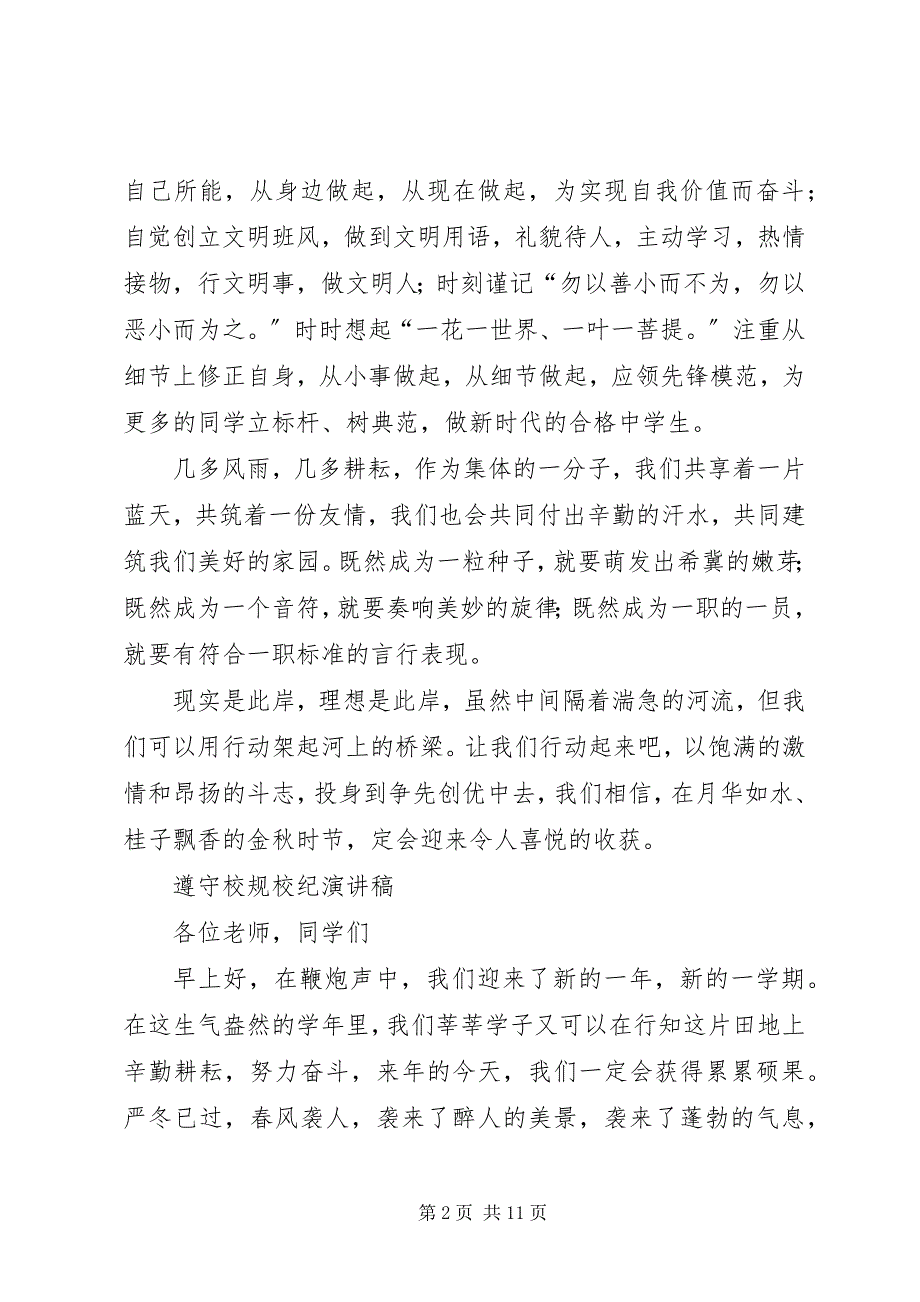 自己所能，从身边做起，从现在做起，为实现自我价值而奋斗；
自觉创立文明班风，做到文明用语，礼貌待人，主动学习，热情
接物，行文明事，做文明人；时刻谨记“勿以善小而不为，勿以
恶小而为之。〞时时想起“一花一世界、一叶一菩提。〞注重从
细节上修正自身，从小事做起，从细节做起，应领先锋模范，为
更多的同学立标杆、树典范，做新时代的合格中学生。
几多风雨，几多耕耘，作为集体的一分子，我们共享着一片
蓝天，共筑着一份友情，我们也会共同付出辛勤的汗水，共同建
筑我们美好的家园。既然成为一粒种子，就要萌发出希冀的嫩芽；
既然成为一个音符，就要奏响美妙的旋律；既然成为一职的一员，
就要有符合一职标准的言行表现。
现实是此岸，理想是此岸，虽然中间隔着湍急的河流，但我
们可以用行动架起河上的桥梁。让我们行动起来吧，以饱满的激
情和昂扬的斗志，投身到争先创优中去，我们相信，在月华如水、
桂子飘香的金秋时节，定会迎来令人喜悦的收获。
遵守校规校纪演讲稿
各位老师，同学们
早上好，在鞭炮声中，我们迎来了新的一年，新的一学期。
在这生气盎然的学年里，我们莘莘学子又可以在行知这片田地上
辛勤耕耘，努力奋斗，来年的今天，我们一定会获得累累硕果。
严冬已过，春风袭人，袭来了醉人的美景，袭来了蓬勃的气息，
第 2 页 共 11 页